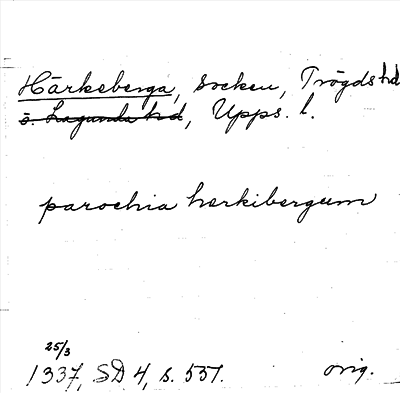 Härkeberga, socken, Trögds hd
ö. Lagunda hd, Upps. l.
parochia hærkibergum
25/3
1337, SD 4, s. 551. orig.